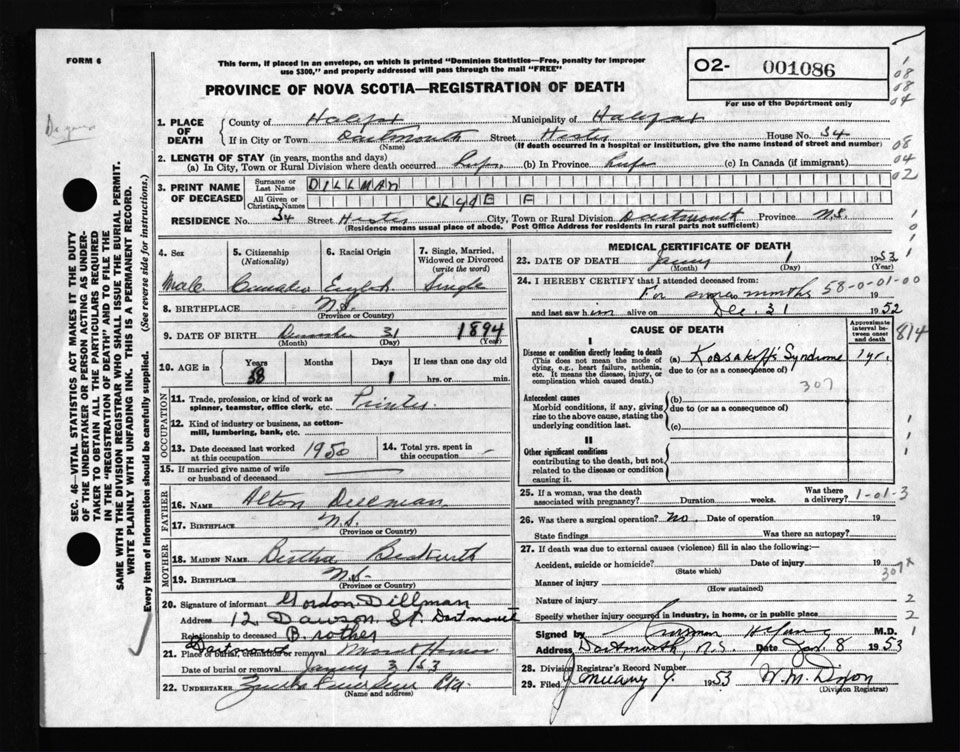 FORM 6
This form, if placed in an envelope, on which is printed "Dominion Statistics—Free, penalty for improper
use $300," and properly addressed will pass through the mail "FREE"
PROVINCE OF NOVA SCOTIA—REGISTRATION OF DEATH
O2- 001086
For use of the Department only
1
08
08
04
1. PLACE OF DEATH
County of Halifax Municipality of Halifax
If in City or Town Dartmouth Street Hester House No. 34
(Name) (If death occurred in a hospital or institution, give name instead of street and number)
08
2. LENGTH OF STAY (in years, months and days)
(a) In City, Town or Rural Division where death occurred Life (b) In Province Life (c) In Canada (if immigrant)
04
02
3. PRINT NAME OF DECEASED
Surname or Last Name DILLMAN
All Given or Christian Names CLYDE F
RESIDENCE No. 34 Street Hester City, Town or Rural Division Dartmouth Province N.S.
(Residence means usual place of abode. Post Office Address for residents in rural parts not sufficient)
4. Sex
Male
5. Citizenship (Nationality)
Canadian
6. Racial Origin
English
7. Single, Married, Widowed or Divorced (write the word)
Single
8. BIRTHPLACE N.S.
(Province or Country)
9. DATE OF BIRTH December 31 1894
(Month) (Day) (Year)
10. AGE in Years Months Days If less than one day old
58 1 hrs. or min.
OCCUPATION
11. Trade, profession, or kind of work as
spinner, teamster, office clerk, etc. Printer
12. Kind of industry or business, as cotton-
mill, lumbering, bank, etc.
13. Date deceased last worked
at this occupation 1950
14. Total yrs. spent in
this occupation -
15. If married give name of wife
or husband of deceased
FATHER
16. NAME Alton Dillman
17. BIRTHPLACE N.S.
(Province or Country)
MOTHER
18. MAIDEN NAME Bertha
19. BIRTHPLACE N.S.
(Province or Country)
20. Signature of informant Gordon Dillman
Address 12 Dawson St. Dartmouth
Relationship to deceased Brother
21. Place of burial, cremation or removal Dartmouth Mount Hermon
Date of burial or removal 3/53
22. UNDERTAKER
(Name and address)
MEDICAL CERTIFICATE OF DEATH
23. DATE OF DEATH January 1 1953
(Month) (Day) (Year)
24. I HEREBY CERTIFY that I attended deceased from:
For months 58-0-01-00 19
and last saw him alive on Dec. 31 1952
CAUSE OF DEATH
Approximate interval between onset and death
814
I
Disease or condition directly leading to death (a) Korsakoff's Syndrome 1 yr.
(This does not mean the mode of dying, e.g., heart failure, asthenia, etc. It means the disease, injury, or complication which caused death.)
due to (or as a consequence of)
307
Antecedent causes (b)
Morbid conditions, if any, giving rise to the above cause, stating the underlying condition last.
due to (or as a consequence of)
(c)
II
Other significant conditions
contributing to the death, but not related to the disease or condition causing it.
25. If a woman, was the death
associated with pregnancy? Duration weeks. Was there
a delivery? 1-01-3
26. Was there a surgical operation? no. Date of operation 19
State findings Was there an autopsy?
27. If death was due to external causes (violence) fill in also the following:—
Accident, suicide or homicide? Date of injury 19
(State which)
307x
Manner of injury
(How sustained)
Nature of injury 2
Specify whether injury occurred in industry, in home, or in public place 2
Signed by M.D. 1
Address Dartmouth, N.S. Date Jan. 8 1953
28. Division Registrar's Record Number
29. Filed January 9. 1953 W.M. Dixon
(Division Registrar)
SEC. 46—VITAL STATISTICS ACT MAKES IT THE DUTY
OF THE UNDERTAKER OR PERSON ACTING AS UNDER-
TAKER TO OBTAIN ALL THE PARTICULARS REQUIRED
IN THE "REGISTRATION OF DEATH" AND TO FILE THE
SAME WITH THE DIVISION REGISTRAR WHO SHALL ISSUE THE BURIAL PERMIT.
WRITE PLAINLY WITH UNFADING INK. THIS IS A PERMANENT RECORD.
Every item of information should be carefully supplied. (See reverse side for instructions.)